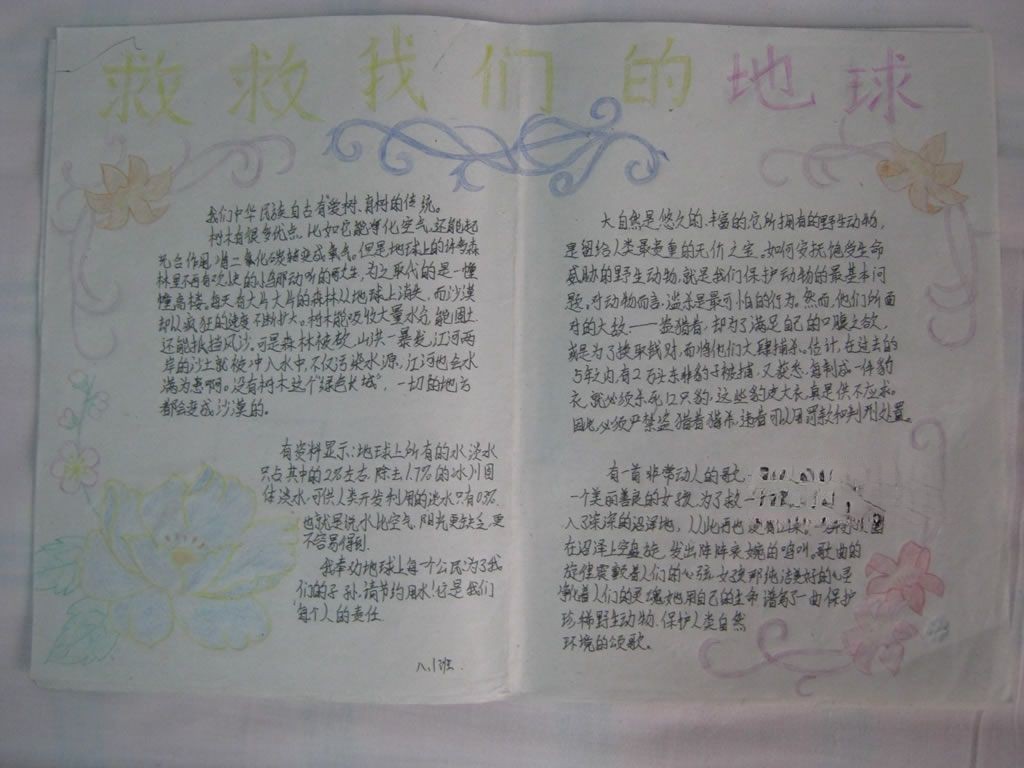 救救我们的地球
我们中华民族自古有爱树、育树的传统。
树木有很多优点。比如它能净化空气,还能起
光合作用,将二氧化碳转变成氧气。但是地球上的许多森
林里不再有欢快的小鸟那动听的歌声,为之取代的是一幢
幢高楼。每天有大片大片的森林从地球上消失,而沙漠
却以疯狂的速度不断扩大。树木能吸收大量水分,能固土
还能抵挡风沙。可是森林被砍,山洪一暴发,江河两
岸的沙土就被冲入水中,不仅污染水源,江河也会水
满为患啊。没有树木这个"绿色长城",一切的地方
都会变成沙漠的。
有资料显示:地球上所有的水,淡水
只占其中的2%左右,除去1.7%的冰川固
体淡水,可供人类开发利用的淡水只有0.3%
也就是说,水比空气,阳光更缺乏,更
不容易得到.
我奉劝地球上每一个公民:为了我
们的子孙,请节约用水!这是我们
每个人的责任.
八.1班.
大自然是悠久的,丰富的,它所拥有的野生动物,
是留给人类最贵重的无价之宝。如何安抚饱受生命
威胁的野生动物,就是我们保护动物的最基本问
题,对动物而言,滥杀是最可怕的行为。然而,他们所面
对的大敌——盗猎者,却为了满足自己的口腹之欲,
或是为了换取钱财,而将他们大肆捕杀。估计,在过去的
5年之内,有2万头东非豹子被捕,又获悉,每制成一件豹
衣,就必须杀死口只豹,这些豹皮大衣,真是供不应求。
因此,必须严禁盗猎者猎杀,违者可以用罚款和判刑处置。
有一首非常动人的歌.
一个美丽善良的女孩,为了救一
入了深深的沼泽地,从此再也没
在沼泽上空盘旋,发出阵阵哀婉的鸣叫。歌曲的
旋律震撼着人们的心弦,女孩那纯洁美好的心灵
净化着人们的灵魂,她用自己的生命谱写了一曲保护
珍稀野生动物、保护人类自然
环境的颂歌。